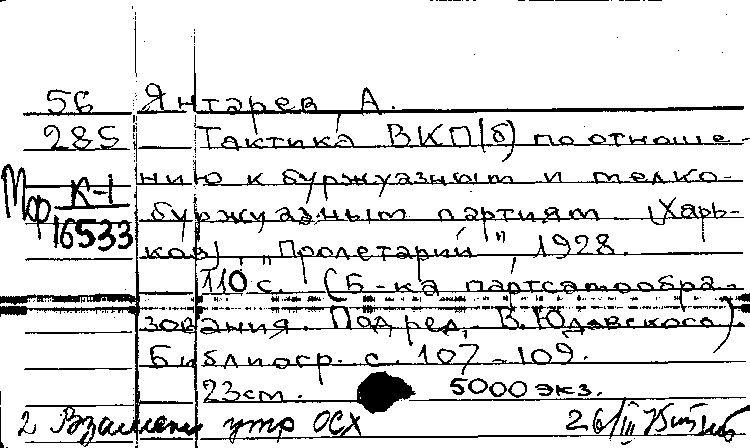 56 Янтарев, А.
285 Тактика ВКП(б) по отноше-
Мф К-1 нию к буржуазным и мелко-
16533 буржуазным партиям. [Харь-
ков], „Пролетарий", 1928.
110 с. (Б-ка партсамообра-
зования. Под ред. В. Юдовского).
Библиогр. с. 107-109.
23см. 5000 экз.
2 Взамен утр ОСХ 26/III